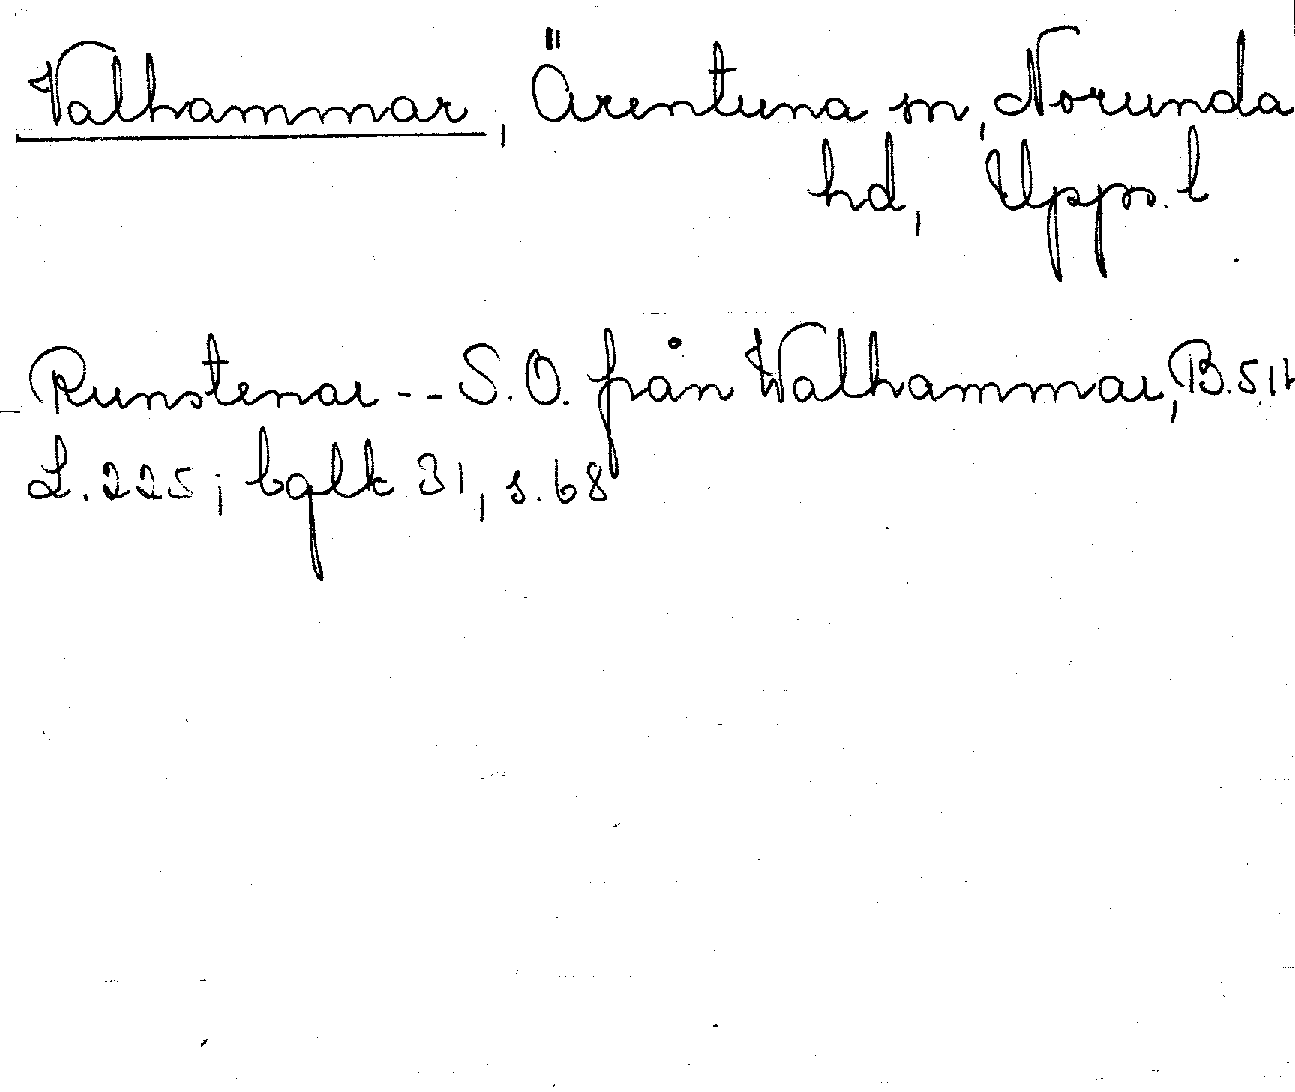 Valhammar, Ärentuna sn, Norunda
hd, Upps. l
Runstenar -- S.O. från Walhammar, B. 511
L. 225; bqlk 31, s. 68